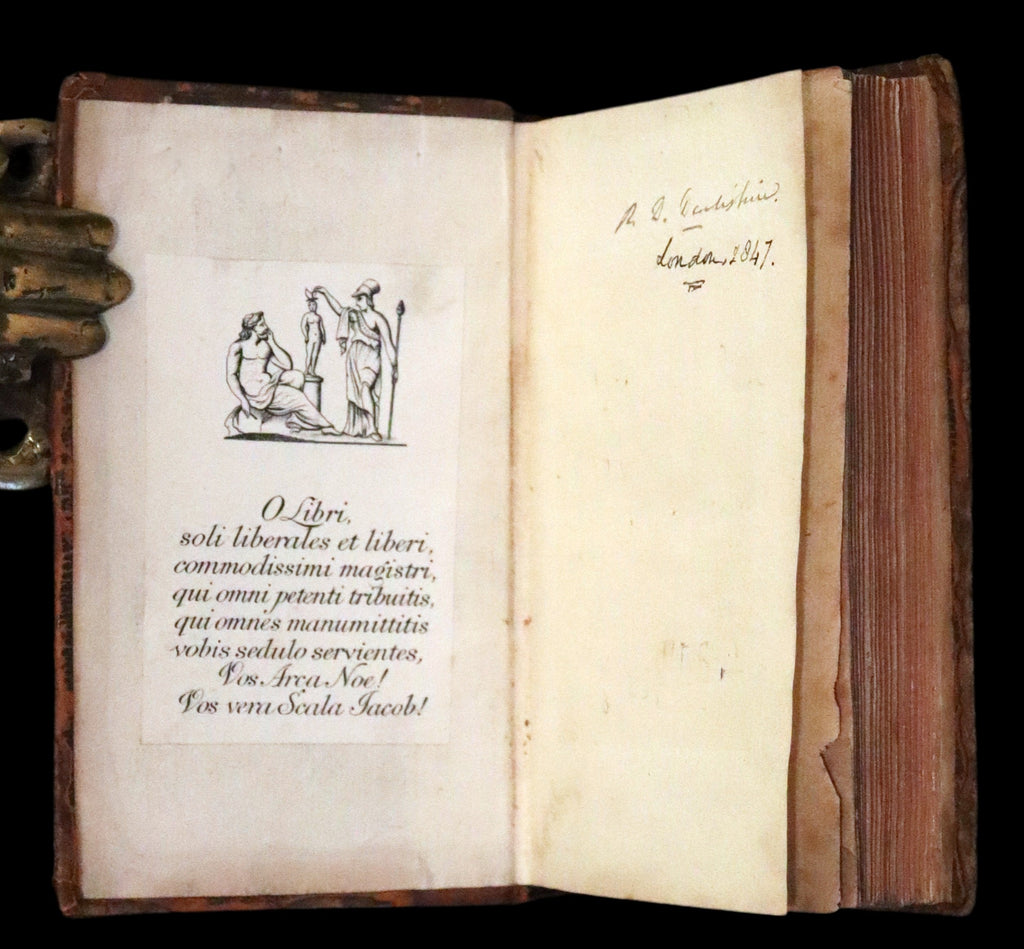 O Libri,
soli liberales et liberi,
commodissimi magistri,
qui omni petenti tribuitis,
qui omnes manumittitis
vobis sedulo servientes,
Vos Arca Noe!
Vos vera Scala Jacob!
R. D. Darbishire.
London, 1847.